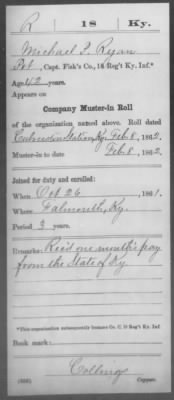 R 18 Ky.
Michael F. Ryan
Pvt, Capt. Fisk's Co., 18 Reg't Ky. Inf.*
Age 42 years.
Appears on
Company Muster-in Roll
of the organization named above. Roll dated
Station, Ky. Feb 8, 1862.
Muster-in to date Feb 8, 1862.
Joined for duty and enrolled:
When Oct 26, 1861.
Where Falmouth, Ky.
Period 3 years.
Remarks: Rec'd one month's pay
from the State of Ky
*This organization subsequently became Co. C 18 Reg't Ky. Inf.
Book mark:
Collins
Copyist.